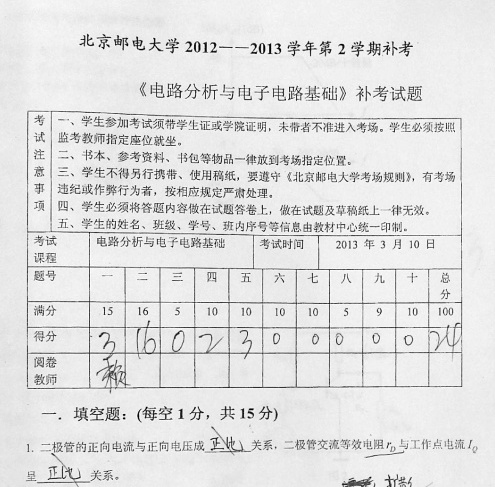 北京邮电大学 2012——2013 学年第 2 学期补考
《电路分析与电子电路基础》补考试题
考试注意事项
一、学生参加考试须带学生证或学院证明，未带者不准进入考场。学生必须按照
监考教师指定座位就坐。
二、书本、参考资料、书包等物品一律放到考场指定位置。
三、学生不得另行携带、使用稿纸，要遵守《北京邮电大学考场规则》，有考场
违纪或作弊行为者，按相应规定严肃处理。
四、学生必须将答题内容做在试题答卷上，做在试题及草稿纸上一律无效。
五、学生的姓名、班级、学号、班内序号等信息由教材中心统一印制。
考试课程 电路分析与电子电路基础 考试时间 2013 年 3 月 10 日
题号 一 二 三 四 五 六 七 八 九 十 总分
满分 15 16 5 10 10 10 10 5 9 10 100
得分 3 16 0 2 3 0 0 0 0 0 24
阅卷教师
一．填空题：(每空 1 分，共 15 分)
1. 二极管的正向电流与正向电压成 正比 关系，二极管交流等效电阻 r_D 与工作点电流 I_Q
呈 正比 关系。